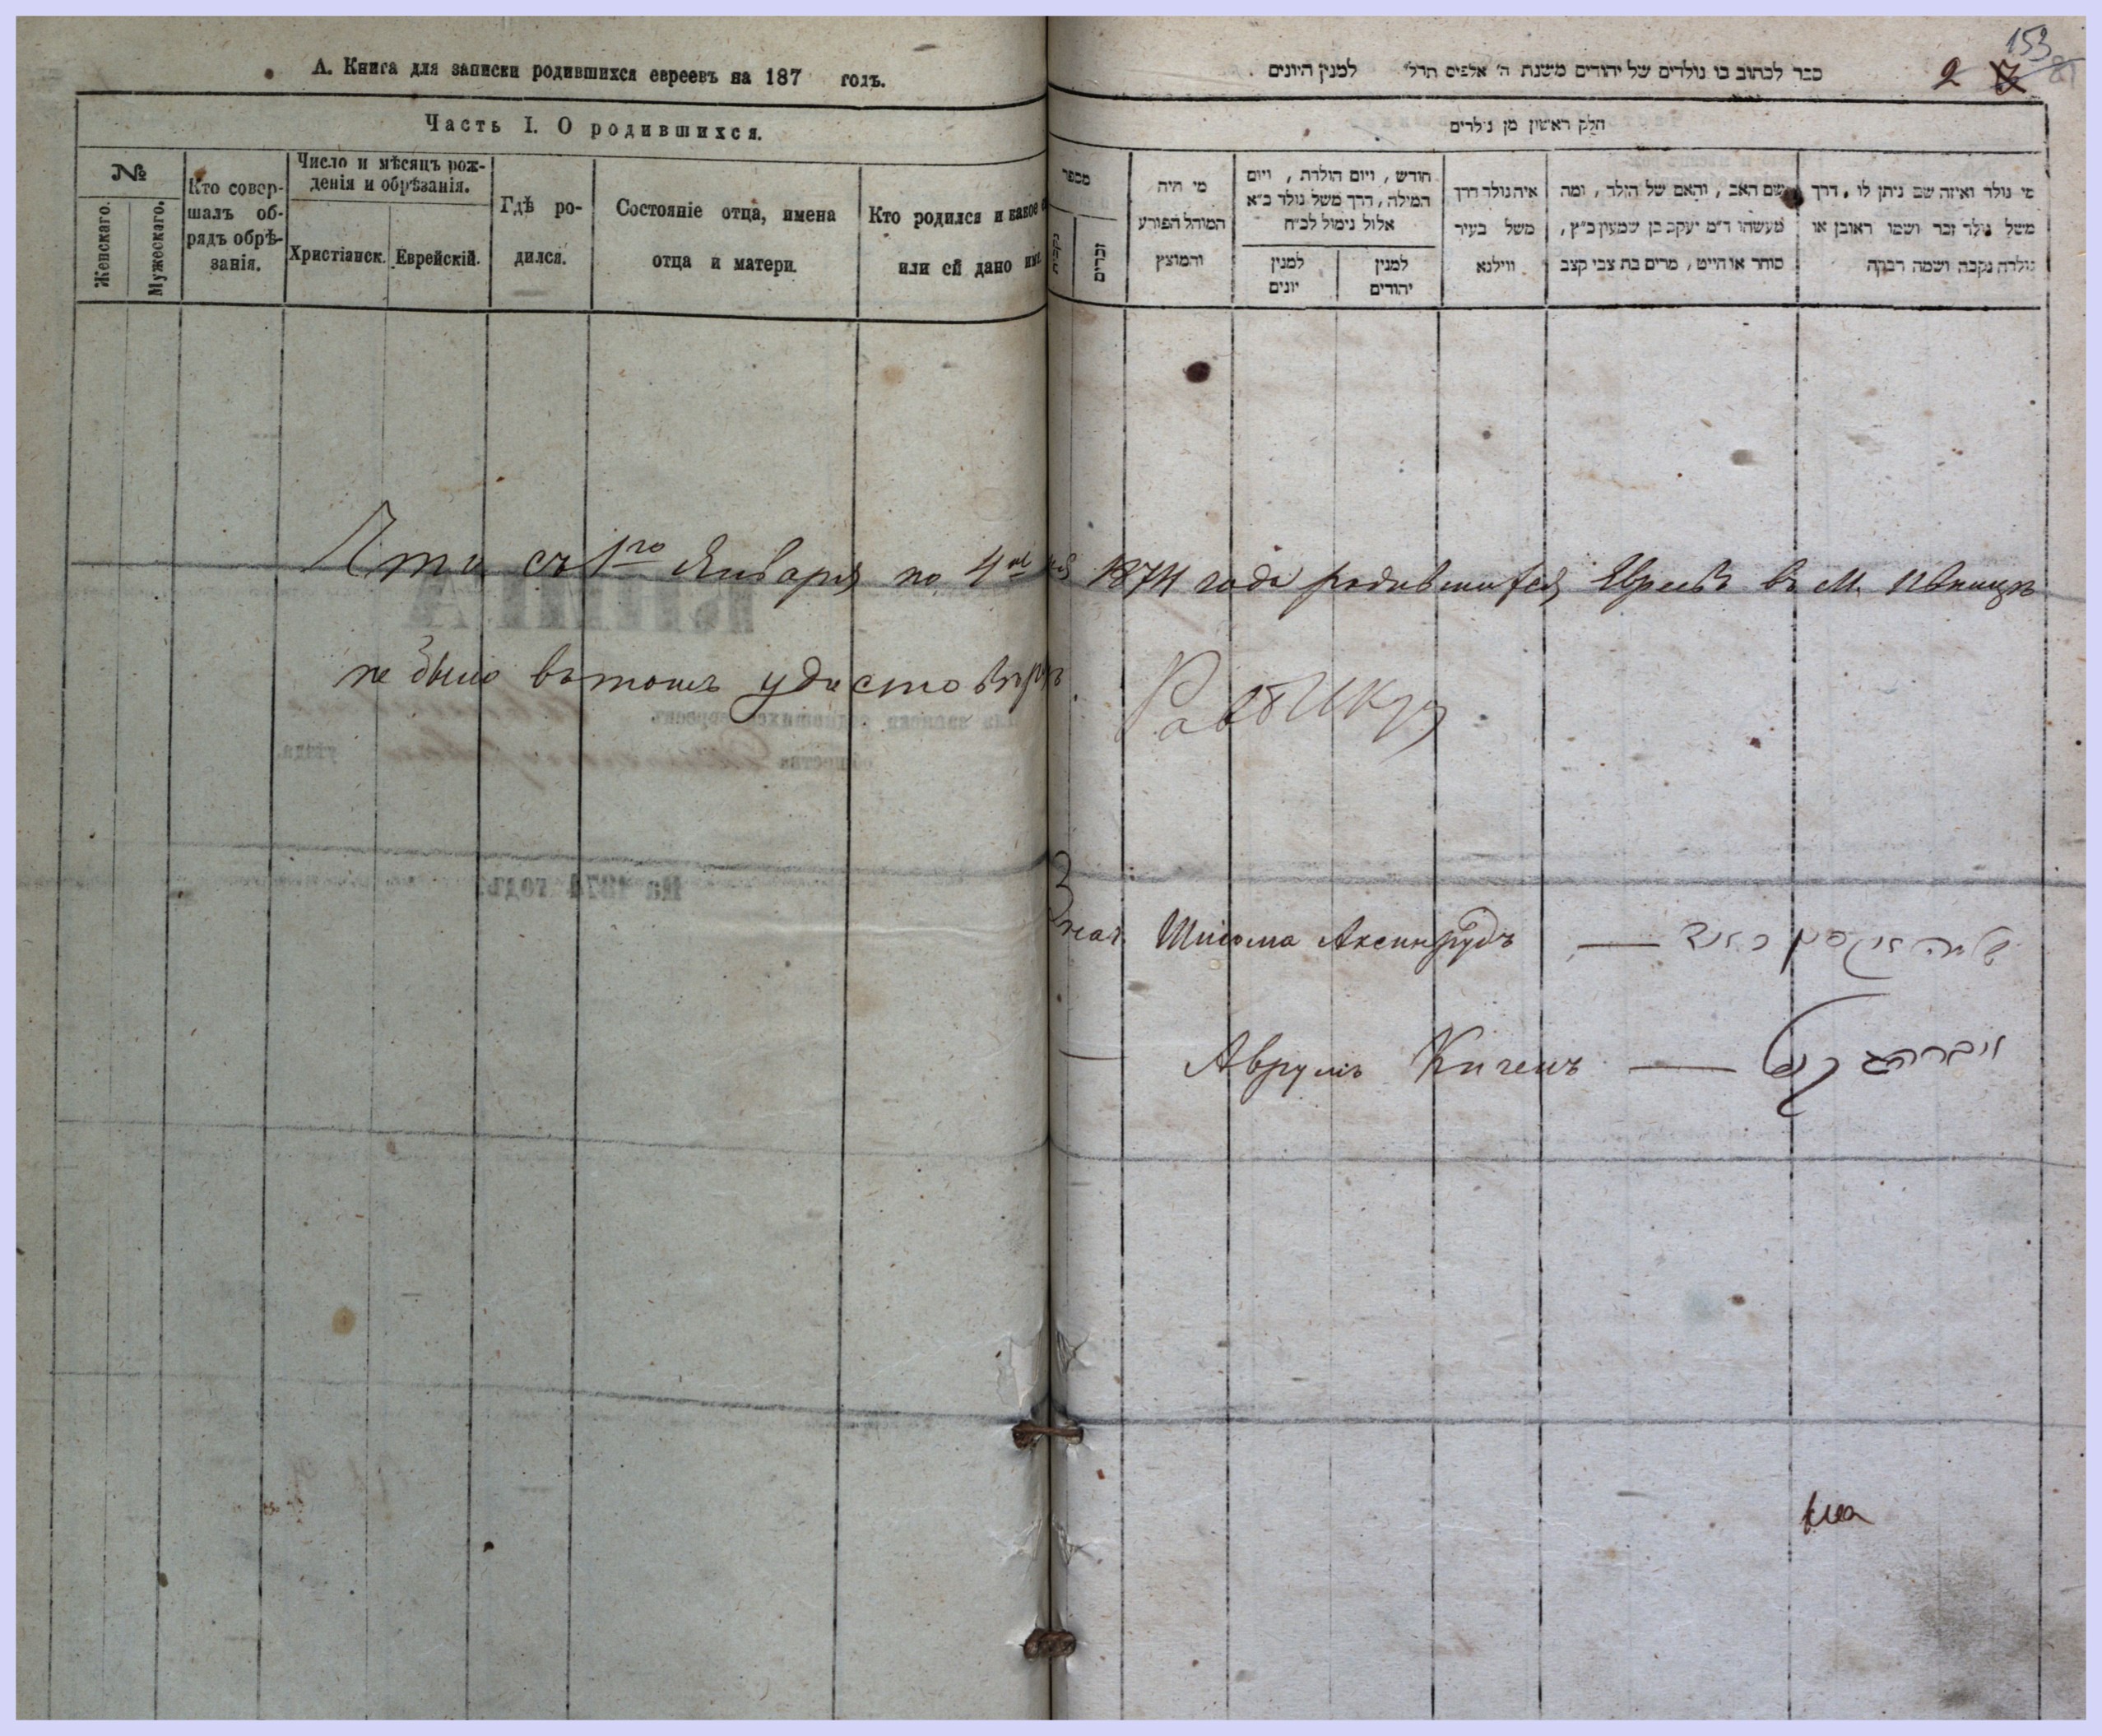 А. Книга для записки родившихся евреевъ на 187 годъ.
Часть I. О родившихся.
№
Женскаго.
Мужескаго.
Кто совер-
шалъ об-
рядъ обрѣ-
занія.
Число и мѣсяцъ рож-
денія и обрѣзанія.
Христіанск.
Еврейскій.
Гдѣ ро-
дился.
Состояніе отца, имена
отца и матери.
Кто родился и какое
или ей дано имя.
153
2
ספר לכתוב בו נולדים של יהודים משנת ה' אלפים תרל" למנין היונים
חלק ראשון מן נולדים
מספר
נקבות
זכרים
מי היה
המוהל הפורע
והמוצץ
חודש, ויום הולדת, ויום
המילה, דרך משל נולד כ"א
אלול נימול לכ"ח
למנין
יונים
למנין
יהודים
איה נולד דרך
משל בעיר
ווילנא
שם האב, והאם של הילד, ומה
מעשהו ד"מ יעקב בן שמעון כ"ץ,
סוחר או חייט, מרים בת צבי קצב
מי נולד ואיזה שם ניתן לו, דרך
משל נולד זכר ושמו ראובן או
נולדה נקבה ושמה רבקה
Что съ 1го Января по 4 мая 1874 года родившихся Евреевъ въ М.
не было въ томъ удостовѣряю
Шліома Аксинрудъ — שלמה
Аврумъ Киченъ — אברהם